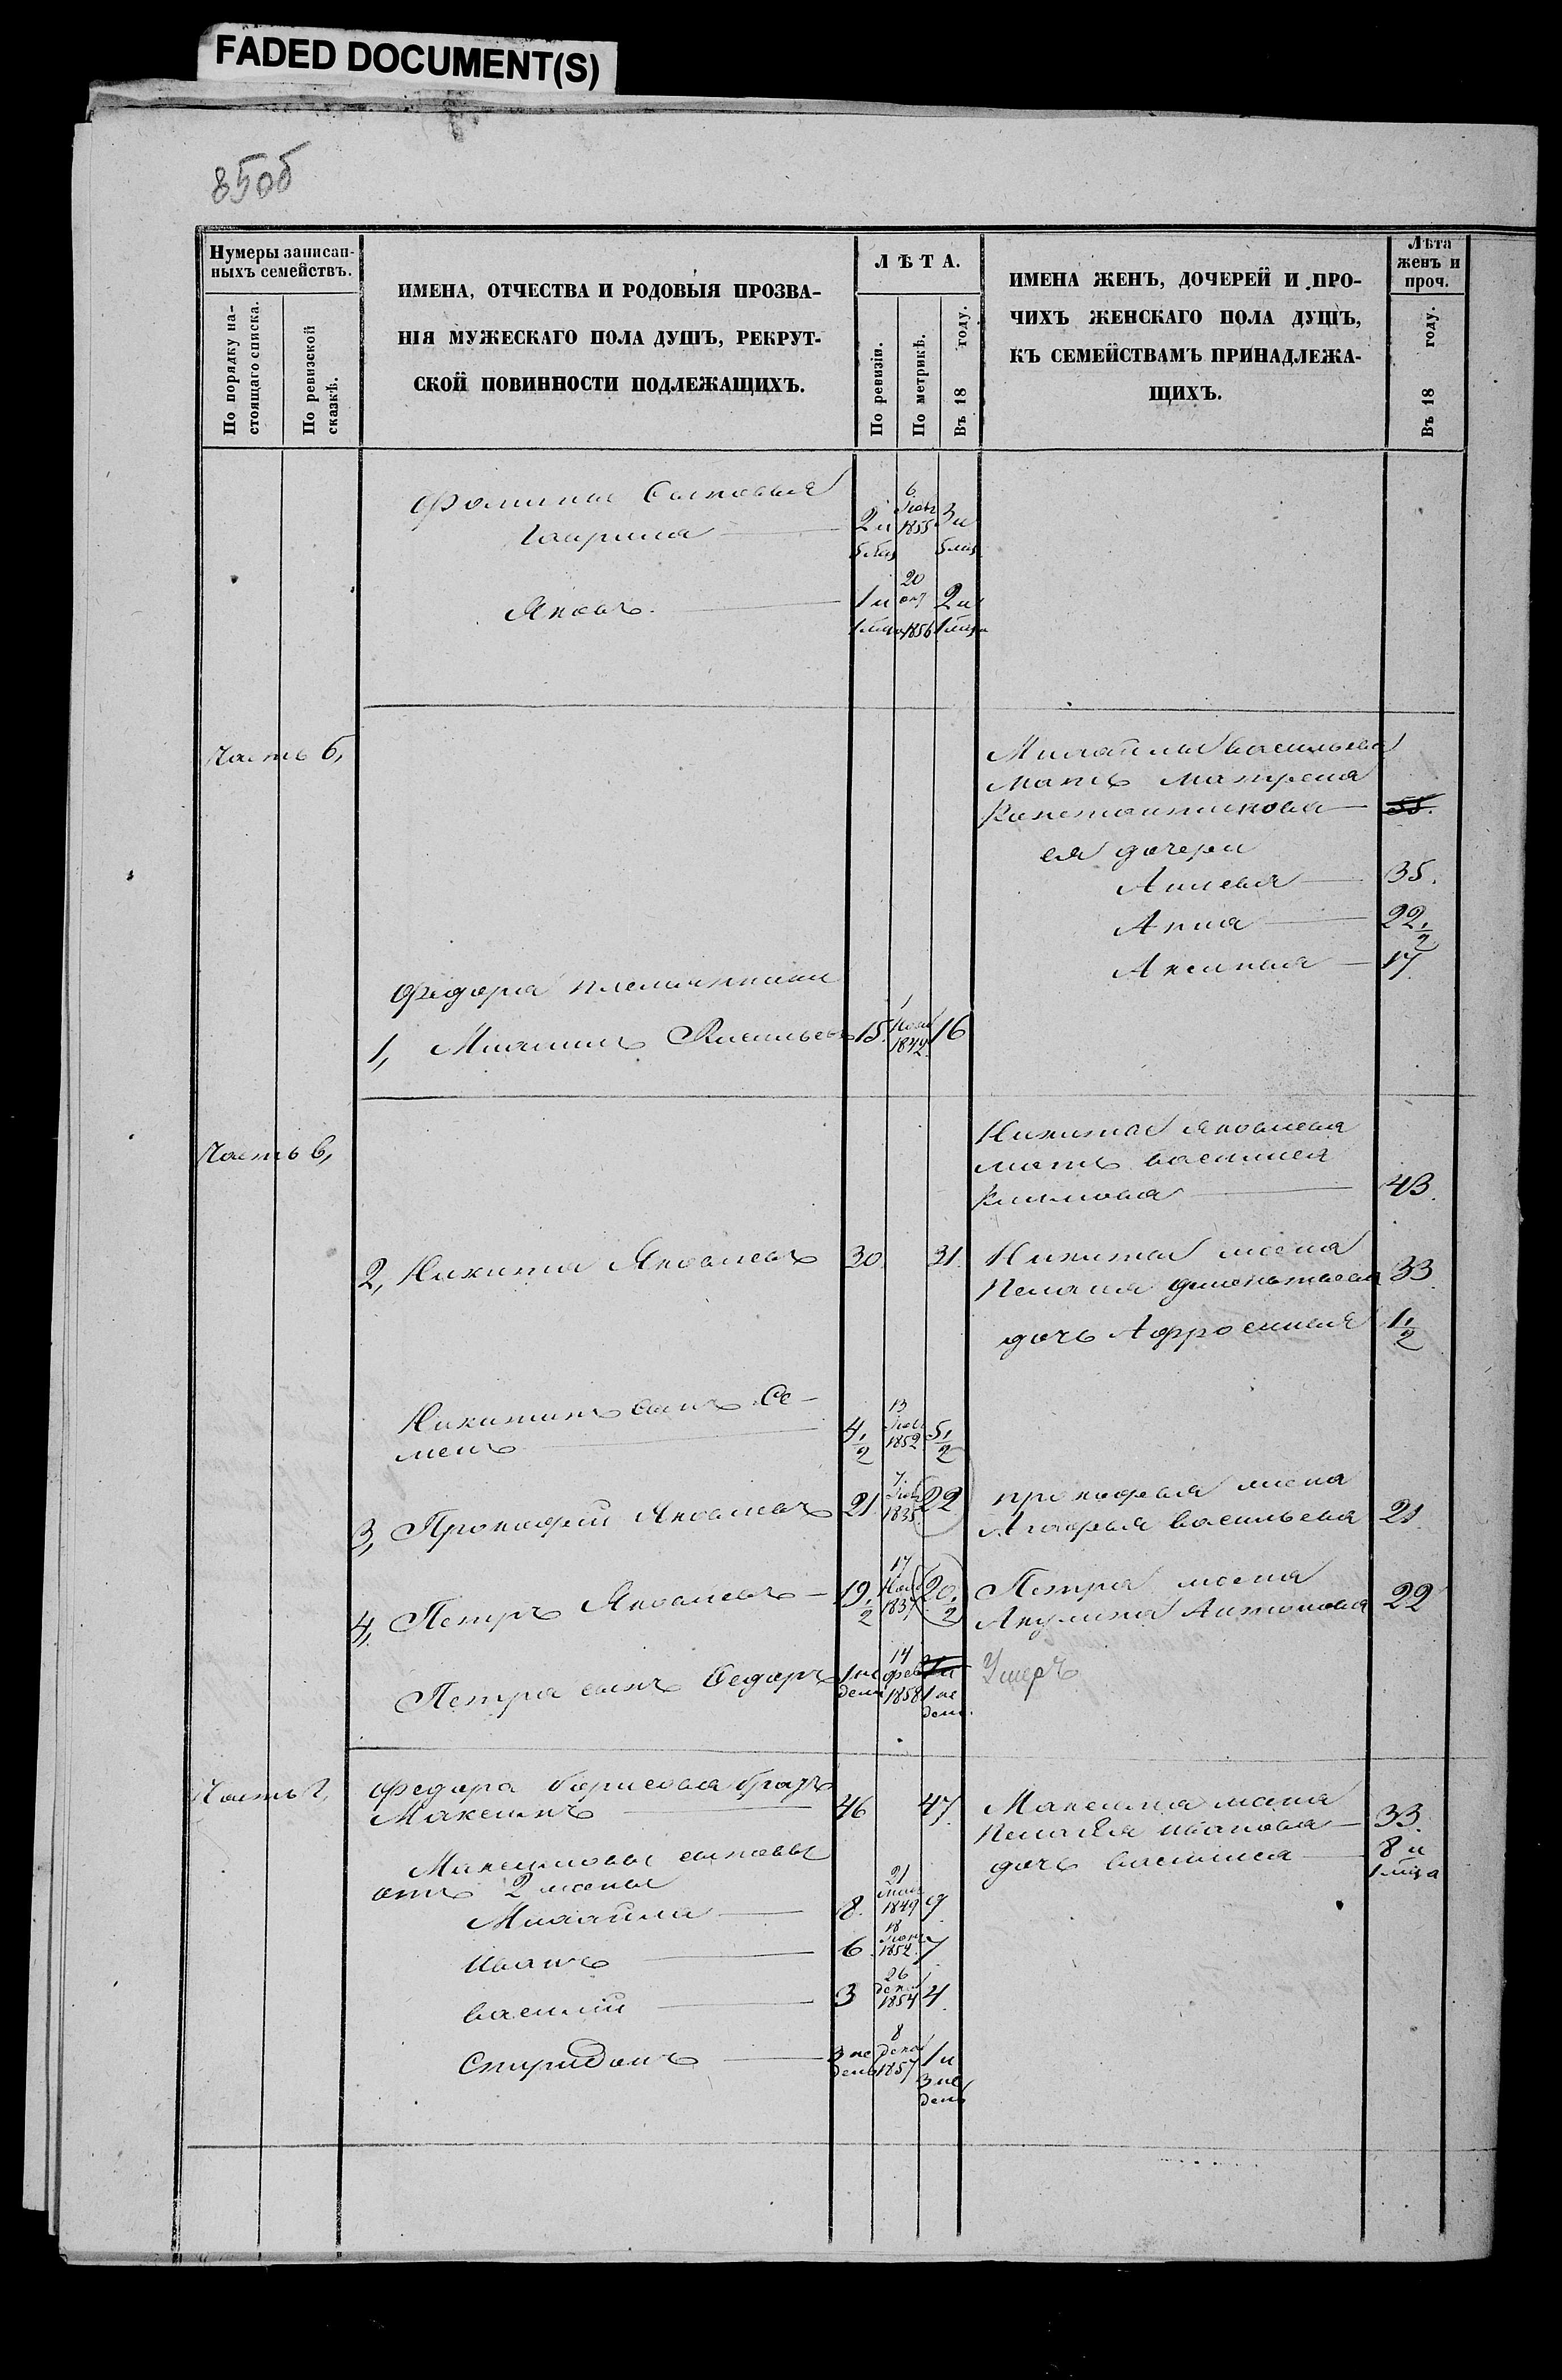 FADED DOCUMENT(S)
85об
Нумеры записан-
ныхъ семействъ.
По порядку на-
стоящаго списка.
По ревизской
сказкѣ.
ИМЕНА, ОТЧЕСТВА И РОДОВЫЯ ПРОЗВА-
НІЯ МУЖЕСКАГО ПОЛА ДУШЪ, РЕКРУТ-
СКОЙ ПОВИННОСТИ ПОДЛЕЖАЩИХЪ.
ЛѢТА.
По ревизіи.
По метрикѣ.
Въ 18 году.
ИМЕНА ЖЕНЪ, ДОЧЕРЕЙ И ПРО-
ЧИХЪ ЖЕНСКАГО ПОЛА ДУШЪ,
КЪ СЕМЕЙСТВАМЪ ПРИНАДЛЕЖА-
ЩИХЪ.
Лѣта
женъ и
проч.
Въ 18 году.
Фомины сыновья
Гаврила 2 и 1855 3 и
Яковъ 1 и 20 окт 1856 2 и
Часть б,
Михайлы Васильева
мать Матрена
Константинова 55.
ея дочери
35.
Анна 22 1/2
Аксинья 17
Федора племянники
1, Михаилъ Васильевъ 15 1 Нояб 16
Часть в,
Никиты Яковлева
мать Василиса
Климова 43.
2, Никита Яковлевъ 30. 31. Никиты жена
Пелагея 33.
дочь Афросинья 1 1/2
Никитинъ сынъ Се-
менъ 4 1/2 13 1852 5 1/2
3, Прокофий Яковлевъ 21 7. 1835 22 Прокофья жена
Агафья Васильева 21
4, Петръ Яковлевъ 19 1/2 17 Нояб 1837 20 1/2 Петра жена
Акулина Антонова 22
Петра сынъ Федоръ 1 не дели 14 фев 1858 1 и 1 не дели Умеръ
Часть г,
Федора Борисова братъ
Максимъ 46 47. Максима жена
Пелагея Иванова 33.
дочь Василиса 8 и 1 мца
Максимовы сыновья
отъ 2 жены
Михайла 8. 21 1849 9
Иванъ 6. 18 7
Василий 3 26 дека 1854 4.
Спиридонъ 3 не дели 8 дека 1857 1 и 3 не дели